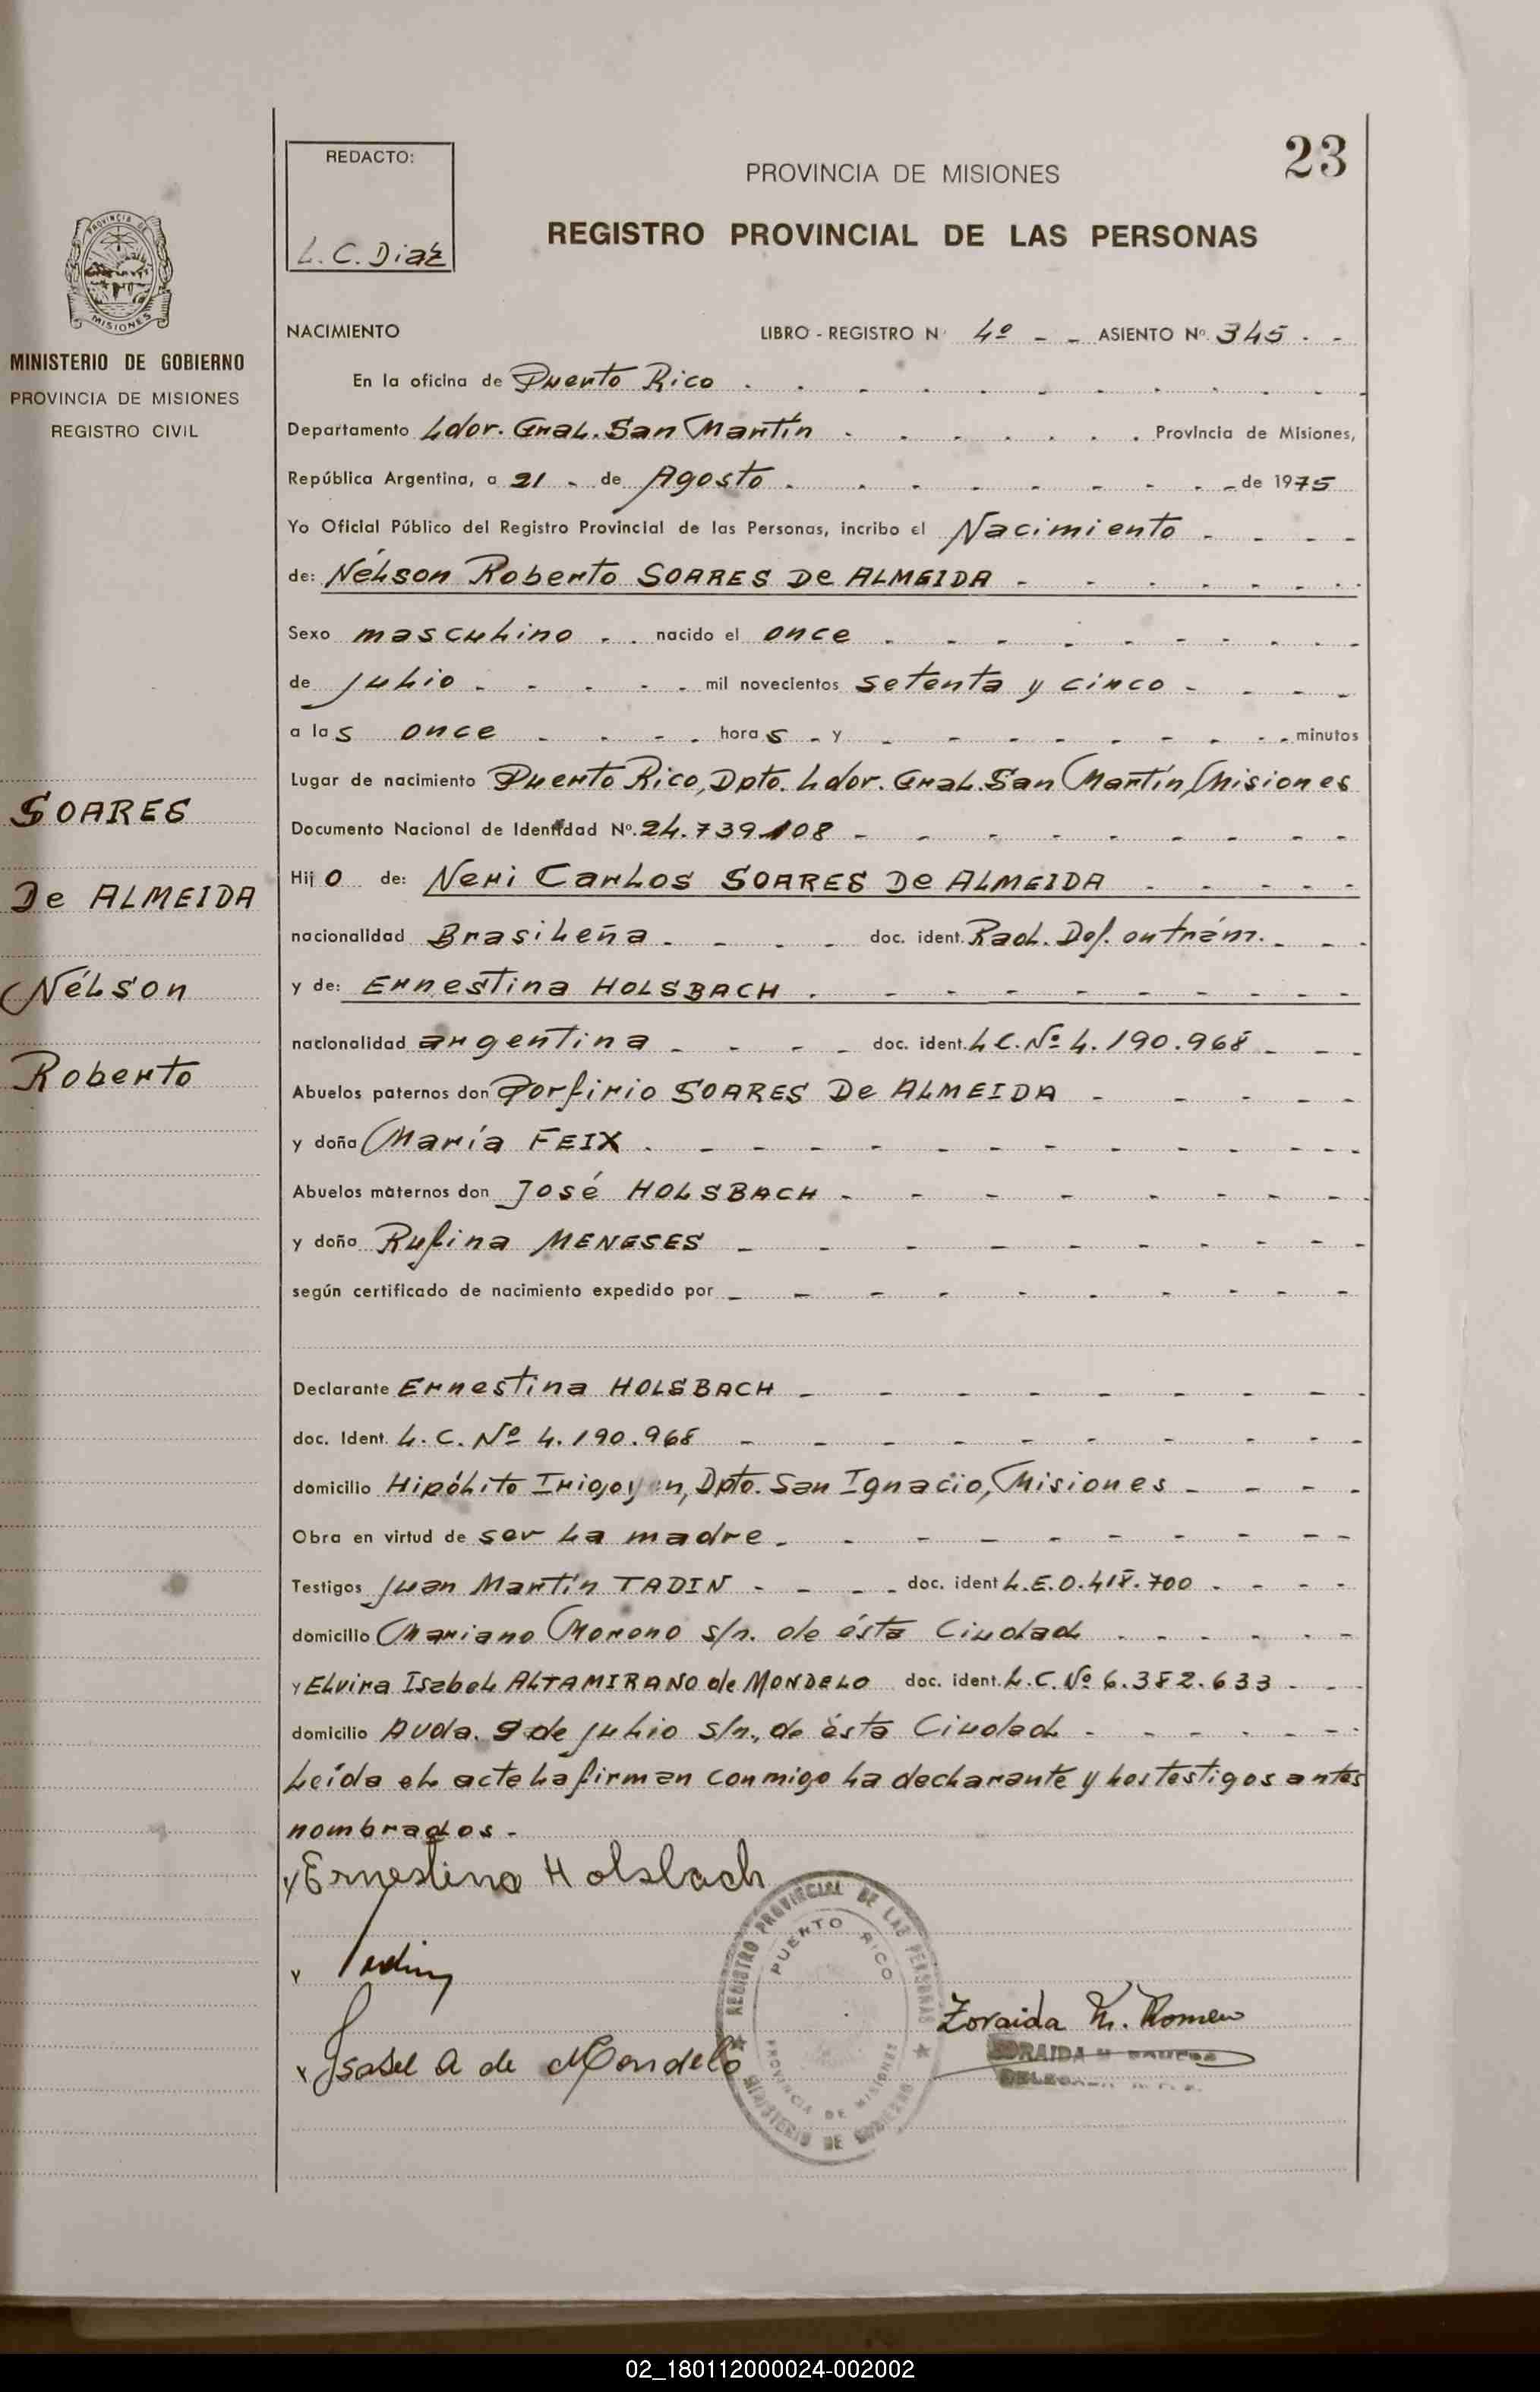 REDACTO:
L.C. Diaz
23
PROVINCIA DE MISIONES
REGISTRO PROVINCIAL DE LAS PERSONAS
PROVINCIA DE
MISIONES
MINISTERIO DE GOBIERNO
PROVINCIA DE MISIONES
REGISTRO CIVIL
SOARES
De ALMEIDA
Nélson
Roberto
NACIMIENTO LIBRO - REGISTRO Nº 4º - - ASIENTO Nº 345 - -
En la oficina de Puerto Rico
Departamento Ldor. Gral. San Martín Provincia de Misiones,
República Argentina, a 21 - de Agosto de 1975
Yo Oficial Público del Registro Provincial de las Personas, incribo el Nacimiento
de: Nélson Roberto SOARES De ALMEIDA
Sexo masculino nacido el once
de julio mil novecientos setenta y cinco
a las once horas - y minutos
Lugar de nacimiento Puerto Rico, Dpto. Ldor. Gral. San Martín, Misiones
Documento Nacional de Identidad Nº. 24.739.108
Hijo de: Neri Carlos SOARES De ALMEIDA
nacionalidad Brasileña doc. ident. Rad. Def. en trám.
y de: Ernestina HOLSBACH
nacionalidad argentina doc. ident. L.C. Nº 4.190.968
Abuelos paternos don Porfirio SOARES De ALMEIDA
y doña María FEIX
Abuelos maternos don José HOLSBACH
y doña Rufina MENESES
según certificado de nacimiento expedido por
Declarante Ernestina HOLSBACH
doc. Ident. L.C. Nº 4.190.968
domicilio Hipólito Irigoyen, Dpto. San Ignacio, Misiones
Obra en virtud de ser la madre
Testigos Juan Martín TADIN doc. ident L.E. 0.418.700
domicilio Mariano Moreno s/n. de ésta Ciudad
y Elvira Isabel ALTAMIRANO de MONDELO doc. ident. L.C. Nº 6.382.633
domicilio Avda. 9 de julio s/n., de ésta Ciudad
Leída el acta la firman conmigo la declarante y los testigos antes
nombrados.-
Ernestina Holsbach
Tadin
Isabel A de Mondelo
REGISTRO PROVINCIAL DE LAS PERSONAS
PUERTO RICO
PROVINCIA DE MISIONES
MINISTERIO DE GOBIERNO
Zoraida M. Romero
ZORAIDA M. ROMERO
02_180112000024-002002